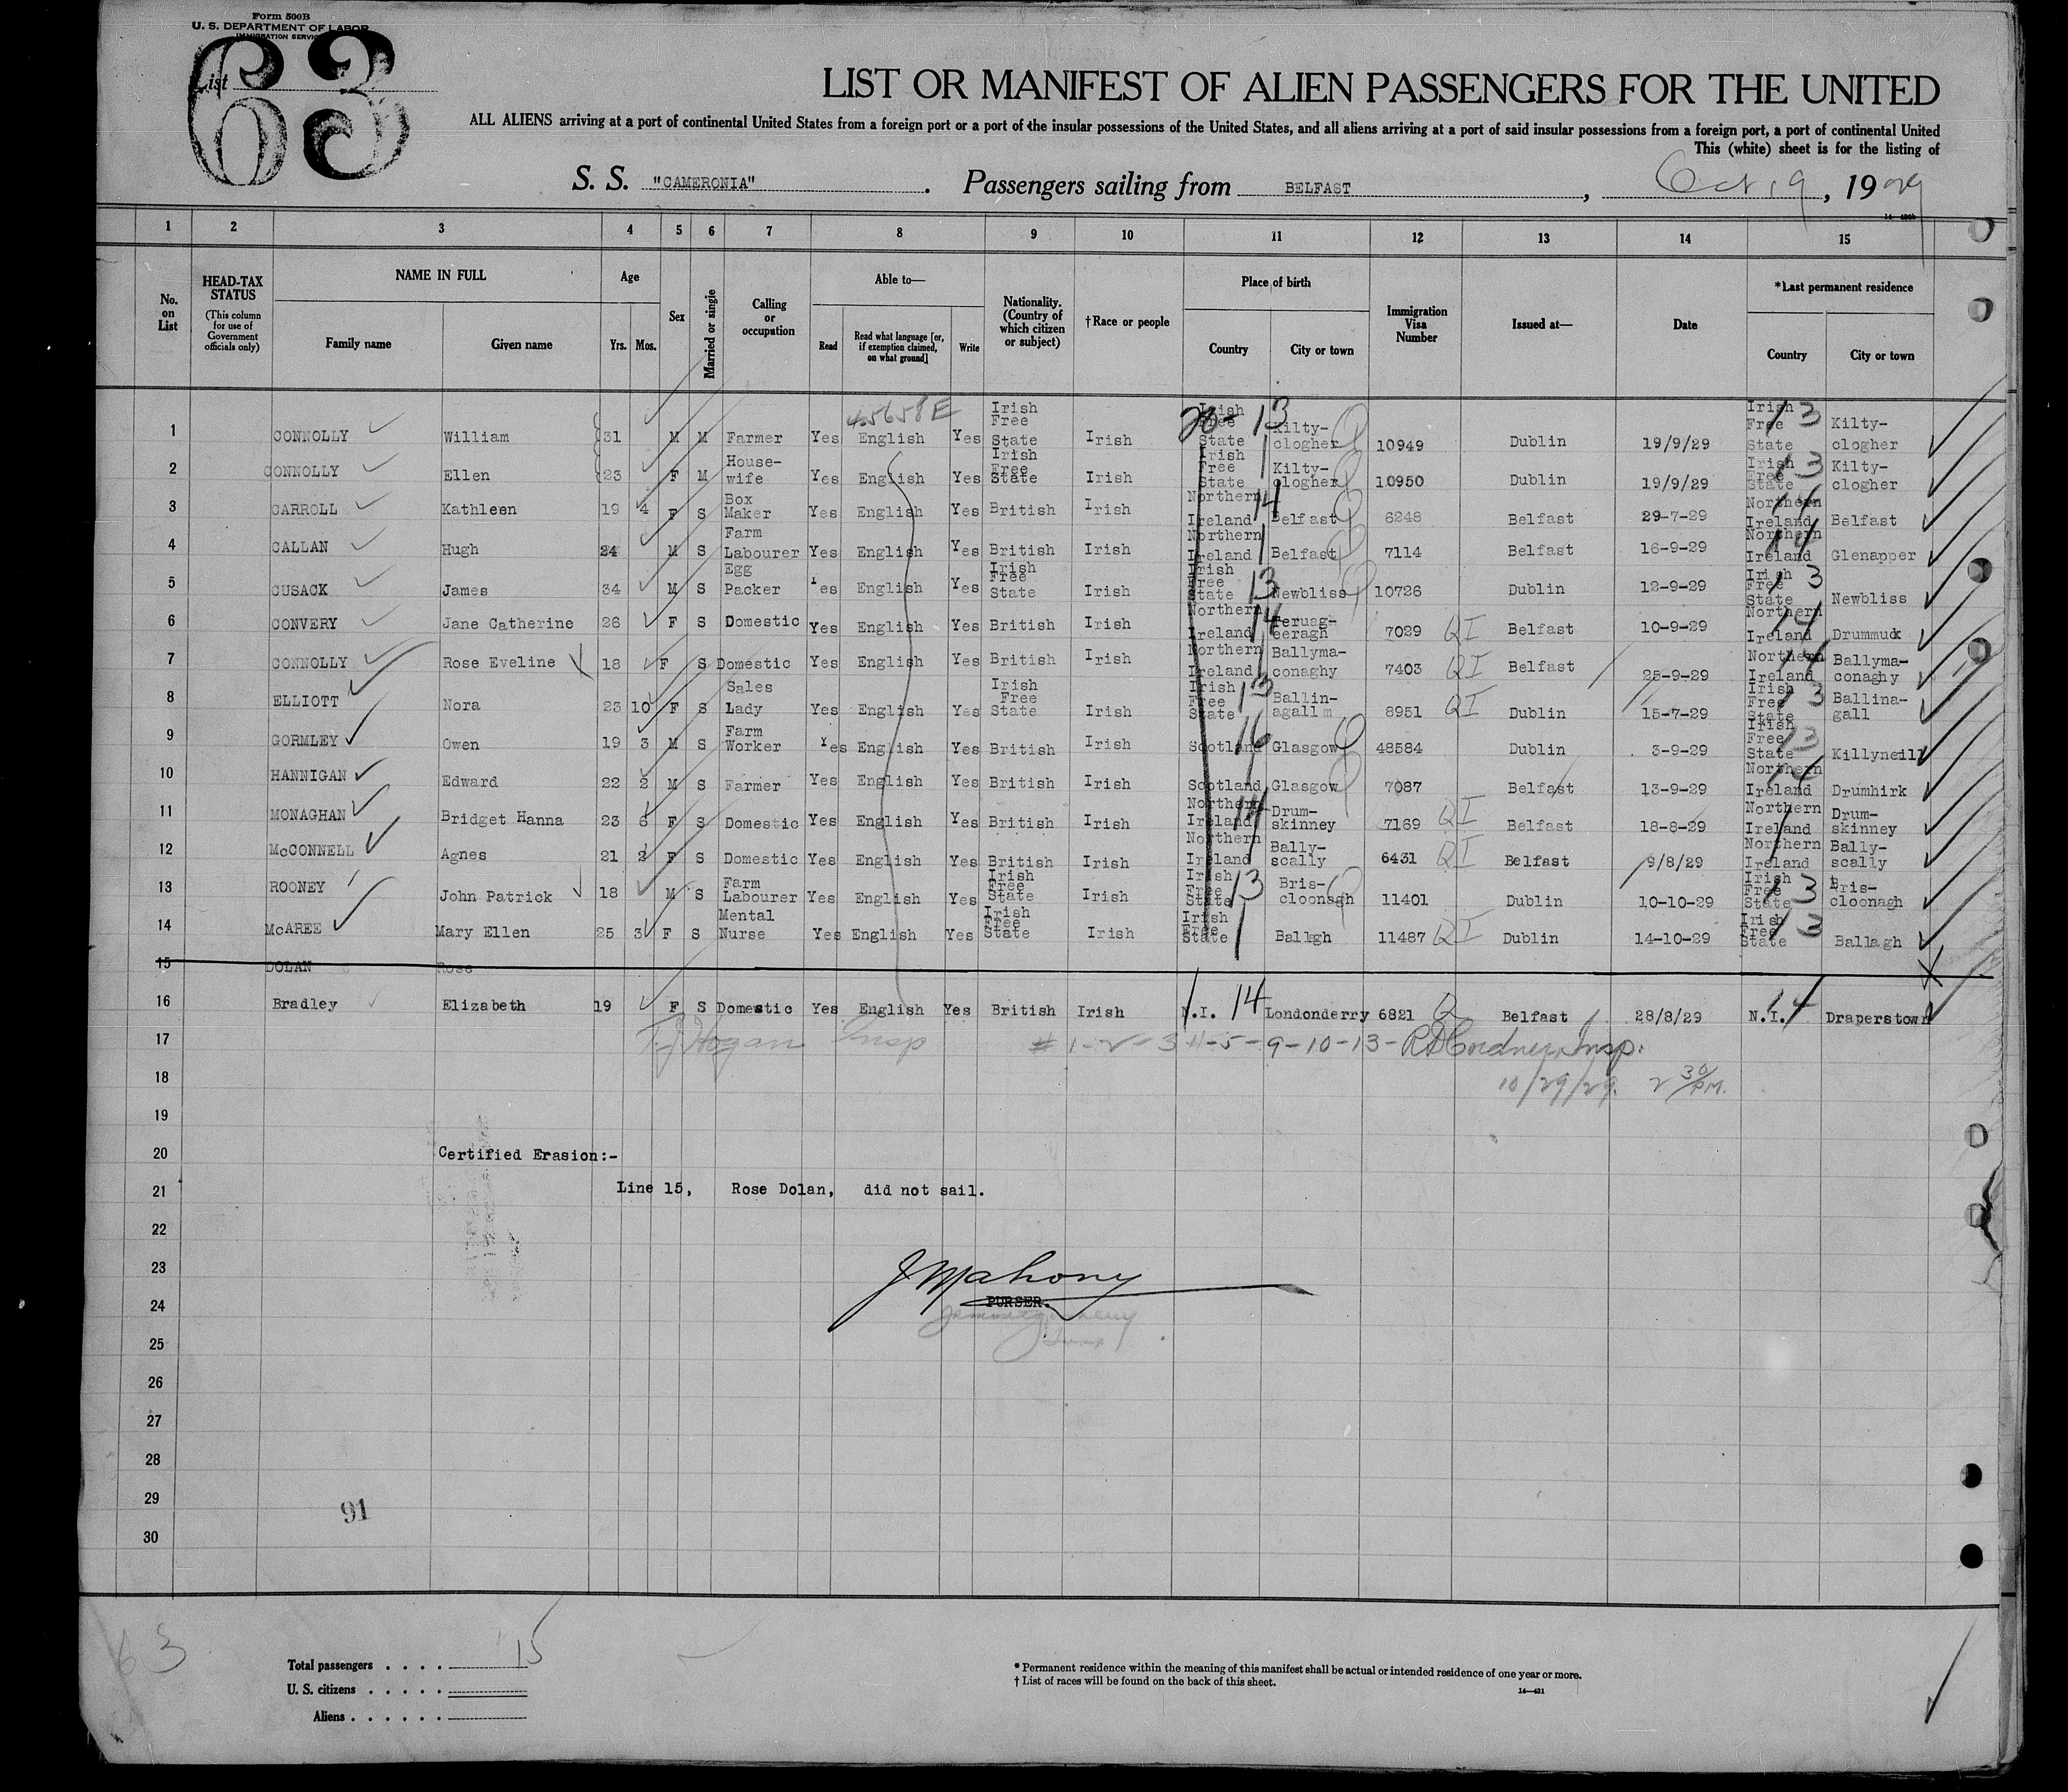 Form 500B
U. S. DEPARTMENT OF LABOR
IMMIGRATION SERVICE
List 63
LIST OR MANIFEST OF ALIEN PASSENGERS FOR THE UNITED
ALL ALIENS arriving at a port of continental United States from a foreign port or a port of the insular possessions of the United States, and all aliens arriving at a port of said insular possessions from a foreign port, a port of continental United
This (white) sheet is for the listing of
S. S. "CAMERONIA". Passengers sailing from BELFAST, Oct. 19, 1929
1 2 3 4 5 6 7 8 9 10 11 12 13 14 15
No. on List
HEAD-TAX STATUS (This column for use of Government officials only)
NAME IN FULL Family name Given name
Age Yrs. Mos.
Sex
Married or single
Calling or occupation
Able to— Read Read what language [or, if exemption claimed, on what ground] Write
Nationality. (Country of which citizen or subject)
†Race or people
Place of birth Country City or town
Immigration Visa Number
Issued at—
Date
*Last permanent residence Country City or town
45658E
1 CONNOLLY William 31 M M Farmer Yes English Yes Irish Free State Irish Irish Free State Kilty-clogher 10949 Dublin 19/9/29 Irish Free State Kilty-clogher
2 CONNOLLY Ellen 23 F M House-wife Yes English Yes Irish Free State Irish Irish Free State Kilty-clogher 10950 Dublin 19/9/29 Irish Free State Kilty-clogher
3 CARROLL Kathleen 19 4 F S Box Maker Yes English Yes British Irish Northern Ireland Belfast 6248 Belfast 29-7-29 Northern Ireland Belfast
4 CALLAN Hugh 24 M S Farm Labourer Yes English Yes British Irish Northern Ireland Belfast 7114 Belfast 16-9-29 Northern Ireland Glenapper
5 CUSACK James 34 M S Egg Packer Yes English Yes Irish Free State Irish Irish Free State Newbliss 10726 Dublin 12-9-29 Irish Free State Newbliss
6 CONVERY Jane Catherine 26 F S Domestic Yes English Yes British Irish Northern Ireland 7029 QI Belfast 10-9-29 Northern Ireland Drummuck
7 CONNOLLY Rose Eveline 18 F S Domestic Yes English Yes British Irish Northern Ireland Ballyma-conaghy 7403 QI Belfast 25-9-29 Northern Ireland Ballyma-conaghy
8 ELLIOTT Nora 23 10 F S Sales Lady Yes English Yes Irish Free State Irish Irish Free State Ballin-agall 8951 QI Dublin 15-7-29 Irish Free State Ballina-gall
9 GORMLEY Owen 19 3 M S Farm Worker Yes English Yes British Irish Scotland Glasgow 48584 Dublin 3-9-29 Irish Free State Killyneill
10 HANNIGAN Edward 22 2 M S Farmer Yes English Yes British Irish Scotland Glasgow 7087 Belfast 13-9-29 Northern Ireland Drumhirk
11 MONAGHAN Bridget Hanna 23 6 F S Domestic Yes English Yes British Irish Northern Ireland Drum-skinney 7169 QI Belfast 18-8-29 Northern Ireland Drum-skinney
12 McCONNELL Agnes 21 2 F S Domestic Yes English Yes British Irish Northern Ireland Bally-scally 6431 QI Belfast 9/8/29 Northern Ireland Bally-scally
13 ROONEY John Patrick 18 M S Farm Labourer Yes English Yes Irish Free State Irish Irish Free State Bris-cloonagh 11401 Dublin 10-10-29 Irish Free State Bris-cloonagh
14 McAREE Mary Ellen 25 3 F S Mental Nurse Yes English Yes Irish Free State Irish Irish Free State Ballagh 11487 QI Dublin 14-10-29 Irish Free State Ballagh
15 DOLAN Rose
16 Bradley Elizabeth 19 F S Domestic Yes English Yes British Irish N.I. 14 Londonderry 6821 Q Belfast 28/8/29 N.I. 14 Draperstown
17 T.J. Hogan Insp # 1-2-3-4-5-9-10-13- Insp.
18 10/29/29. 2 30/PM.
19
20 Certified Erasion:-
21 Line 15, Rose Dolan, did not sail.
22
23 J Mahony
24 PURSER.
25
26
27
28
29 91
30
63
Total passengers . . . . 15
U. S. citizens . . . . .
Aliens . . . . . .
* Permanent residence within the meaning of this manifest shall be actual or intended residence of one year or more.
† List of races will be found on the back of this sheet.
14—431